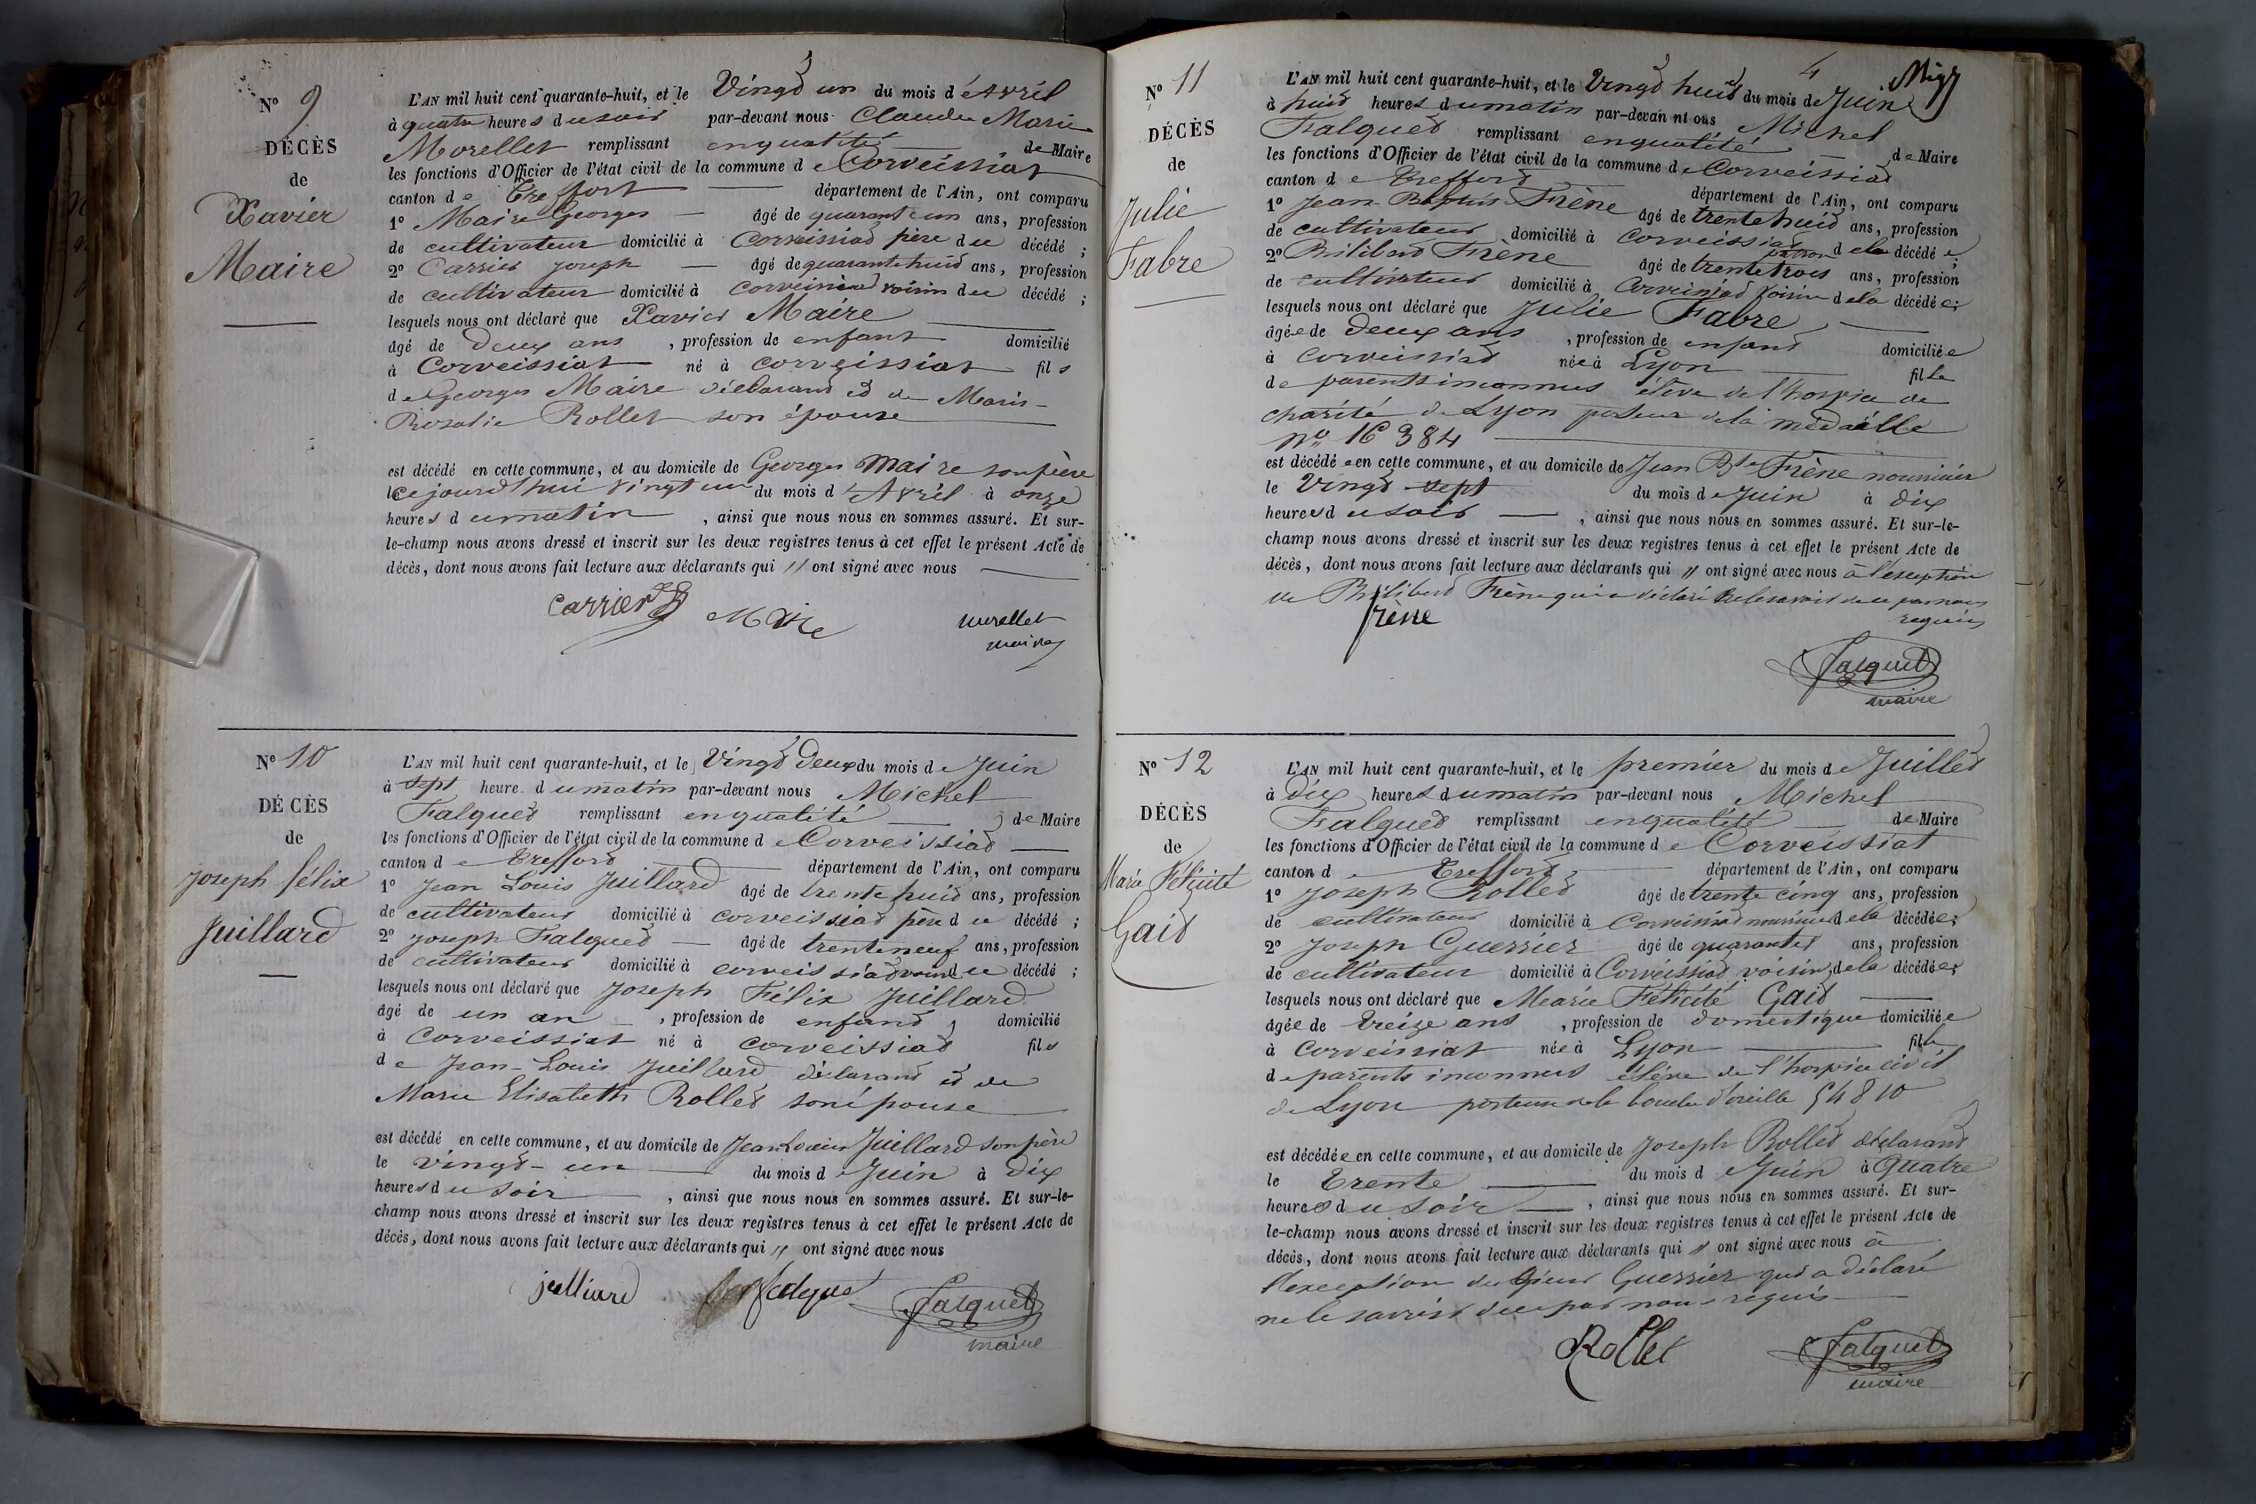 N° 9
DÉCÈS
de
Xavier
Maire
L'AN mil huit cent quarante-huit, et le Vingt un du mois d'Avril
à quatre heures du soir par-devant nous Claude Marie
Morellet remplissant en qualité de Maire
les fonctions d'Officier de l'état civil de la commune de Corveissiat
canton de Treffort département de l'Ain, ont comparu
1° Maire Georges âgé de quarante un ans, profession
de cultivateur domicilié à Corveissiat père du décédé ;
2° Carrier Joseph âgé de quarante huit ans, profession
de cultivateur domicilié à corveissiat voisin du décédé ;
lesquels nous ont déclaré que Xavier Maire
âgé de deux ans , profession de enfant domicilié
à Corveissiat né à corveissiat fils
de Georges Maire déclarant et de Marie
Rosalie Rollet son épouse
est décédé en cette commune, et au domicile de Georges Maire son père
le ce jourd'hui vingt un du mois d'Avril à onze
heures du matin , ainsi que nous nous en sommes assuré. Et sur-
le-champ nous avons dressé et inscrit sur les deux registres tenus à cet effet le présent Acte de
décès, dont nous avons fait lecture aux déclarants qui // ont signé avec nous
carrier Maire morellet
maire
N° 10
DÉCÈS
de
Joseph félix
Juillard
L'AN mil huit cent quarante-huit, et le Vingt deux du mois de Juin
à sept heure du matin par-devant nous Michel
Falquet remplissant en qualité de Maire
les fonctions d'Officier de l'état civil de la commune de Corveissiat
canton de Treffort département de l'Ain, ont comparu
1° Jean Louis Juillard âgé de trente huit ans, profession
de cultivateur domicilié à corveissiat père du décédé ;
2° Joseph Falquet âgé de trente neuf ans, profession
de cultivateur domicilié à corveissiat voisin du décédé ;
lesquels nous ont déclaré que Joseph Félix Juillard
âgé de un an , profession de enfant, domicilié
à Corveissiat né à corveissiat fils
de Jean-Louis Juillard déclarant et de
Marie Elisabeth Rollet son épouse
est décédé en cette commune, et au domicile de Jean Louis Juillard son père
le vingt-un du mois de Juin à dix
heures du soir , ainsi que nous nous en sommes assuré. Et sur-le-
champ nous avons dressé et inscrit sur les deux registres tenus à cet effet le présent Acte de
décès, dont nous avons fait lecture aux déclarants qui // ont signé avec nous
julliard falque Falquet
maire
4
N° 11
DÉCÈS
de
Julie
Fabre
L'AN mil huit cent quarante-huit, et le Vingt huit du mois de Juin
à huit heures du matin par-devant nous Michel
Falquet remplissant en qualité de Maire
les fonctions d'Officier de l'état civil de la commune de Corveissiat
canton de Treffort département de l'Ain, ont comparu
1° Jean Baptiste Frène âgé de trente huit ans, profession
de cultivateur domicilié à Corveissiat patron de la décédée ;
2° Philibert Frène âgé de trente trois ans, profession
de cultivateur domicilié à Corveissiat voisin de la décédée ;
lesquels nous ont déclaré que Julie Fabre
âgée de deux ans , profession de enfant domiciliée
à corveissiat née à Lyon fille
de parents inconnus élève de l'hospice de
charité de Lyon porteur de la médaille
n° 16384
est décédée en cette commune, et au domicile de Jean Bte Frène nourricier
le Vingt sept du mois de Juin à dix
heures du soir , ainsi que nous nous en sommes assuré. Et sur-le-
champ nous avons dressé et inscrit sur les deux registres tenus à cet effet le présent Acte de
décès, dont nous avons fait lecture aux déclarants qui // ont signé avec nous à l'exception
de Philibert Frène qui a déclaré ne le savoir de ce par nous
requis
frène
Falquet
maire
N° 12
DÉCÈS
de
Marie Félicité
Gait
L'AN mil huit cent quarante-huit, et le premier du mois de Juillet
à dix heures du matin par-devant nous Michel
Falquet remplissant en qualité de Maire
les fonctions d'Officier de l'état civil de la commune de Corveissiat
canton de Treffort département de l'Ain, ont comparu
1° Joseph Rollet âgé de trente cinq ans, profession
de cultivateur domicilié à Corveissiat nourricier de la décédée ;
2° Joseph Guerrier âgé de quarante ans, profession
de cultivateur domicilié à Corveissiat voisin de la décédée ;
lesquels nous ont déclaré que Mearie Félicité Gait
âgée de treize ans , profession de domestique domiciliée
à corveissiat née à Lyon fille
de parents inconnus élève de l'hospice civil
de Lyon porteur de la boucle d'oreille 54810
est décédée en cette commune, et au domicile de Joseph Rollet déclarant
le trente du mois de Juin à quatre
heures du soir , ainsi que nous nous en sommes assuré. Et sur-
le-champ nous avons dressé et inscrit sur les deux registres tenus à cet effet le présent Acte de
décès, dont nous avons fait lecture aux déclarants qui // ont signé avec nous à
l'exception du sieur Guerrier qui a déclaré
ne le savoir de ce par nous requis
Rollet Falquet
maire